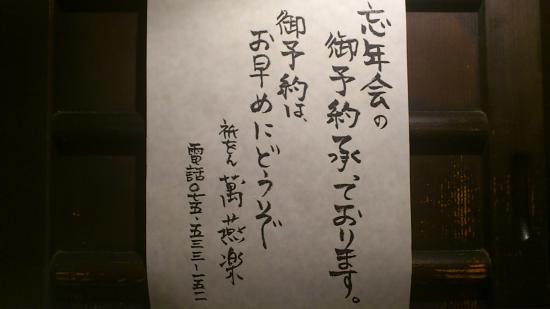 忘年会の
御予約承っております。
御予約は、
お早めにどうぞ
祇をん 萬燕楽
電話〇七五・五三三ー一五一二